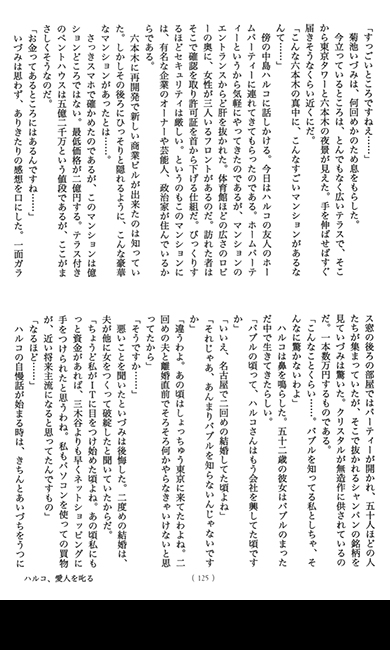 「すっごいところですねえ……」
菊池いづみは、何回めかのため息をもらした。
今立っているところは、とんでもなく広いテラスで、そこ
から東京タワーと六本木の夜景が見えた。手を伸ばせばすぐ
届きそうなくらい近くにだ。
「こんな六本木の真中に、こんなすごいマンションがあるな
んて……」
傍の中島ハルコに話しかける。今日はハルコの友人のホー
ムパーティーに連れてきてもらったのである。ホームパーテ
ィーというから気軽にやってきたのであるが、マンションの
エントランスからど肝を抜かれた。体育館ほどの広さのロビ
ーの奥に、女性が三人いるフロントがあるのだ。訪れた者は
そこで確認を取り許可証を首から下げる仕組だ。びっくりす
るほどセキュリティは厳しい。というのもこのマンションに
は、有名な企業のオーナーや芸能人、政治家が住んでいるか
らである。
六本木に再開発で新しい商業ビルが出来たのは知ってい
た。しかしその後ろにひっそりと隠れるように、こんな豪華
なマンションがあったとは……。
さっきスマホで確かめたのであるが、このマンションは億
ションどころではない。最低価格が二億円する。テラス付き
のペントハウスは五億二千万という値段であるが、ここがま
さしくそうなのだ。
「お金ってあるところにはあるんですね……」
いづみは思わず、ありきたりの感想を口にした。一面ガラ
ス窓の後ろの部屋ではパーティーが開かれ、五十人ほどの人
たちが集まっていたが、そこで抜かれるシャンパンの銘柄を
見ていづみは驚いた。クリスタルが無造作に供されているの
だ。一本数万円するものである。
「こんなことくらい……。バブルを知ってる私としちゃ、そ
んなに驚かないわよ」
ハルコは鼻を鳴らした。五十二歳の彼女はバブルのまった
だ中で生きてきたらしい。
「バブルの頃って、ハルコさんはもう会社を興してた頃です
か」
「いいえ、名古屋で二回めの結婚してた頃よね」
「それじゃあ、あんまりバブルを知らないんじゃないです
か」
「違うわよ。あの頃はしょっちゅう東京に来てたわよね。二
回めの夫と離婚直前でそろそろ何かやらなきゃいけないと思
ってたから」
「そうですか……」
悪いことを聞いたといづみは後悔した。二度めの結婚は、
夫が他に女をつくって破綻したと聞いていたからだ。
「ちょうど私がＩＴに目をつけ始めた頃よね。あの頃私にも
っと資金があれば、三木谷よりも早くネットショッピングに
手をつけられたと思うわね。私もパソコンを使っての買物
が、近い将来主流になると思ってたんですもの」
「なるほど……」
ハルコの自慢話が始まる時は、きちんとあいづちをうつに
ハルコ、愛人を叱る
(125)